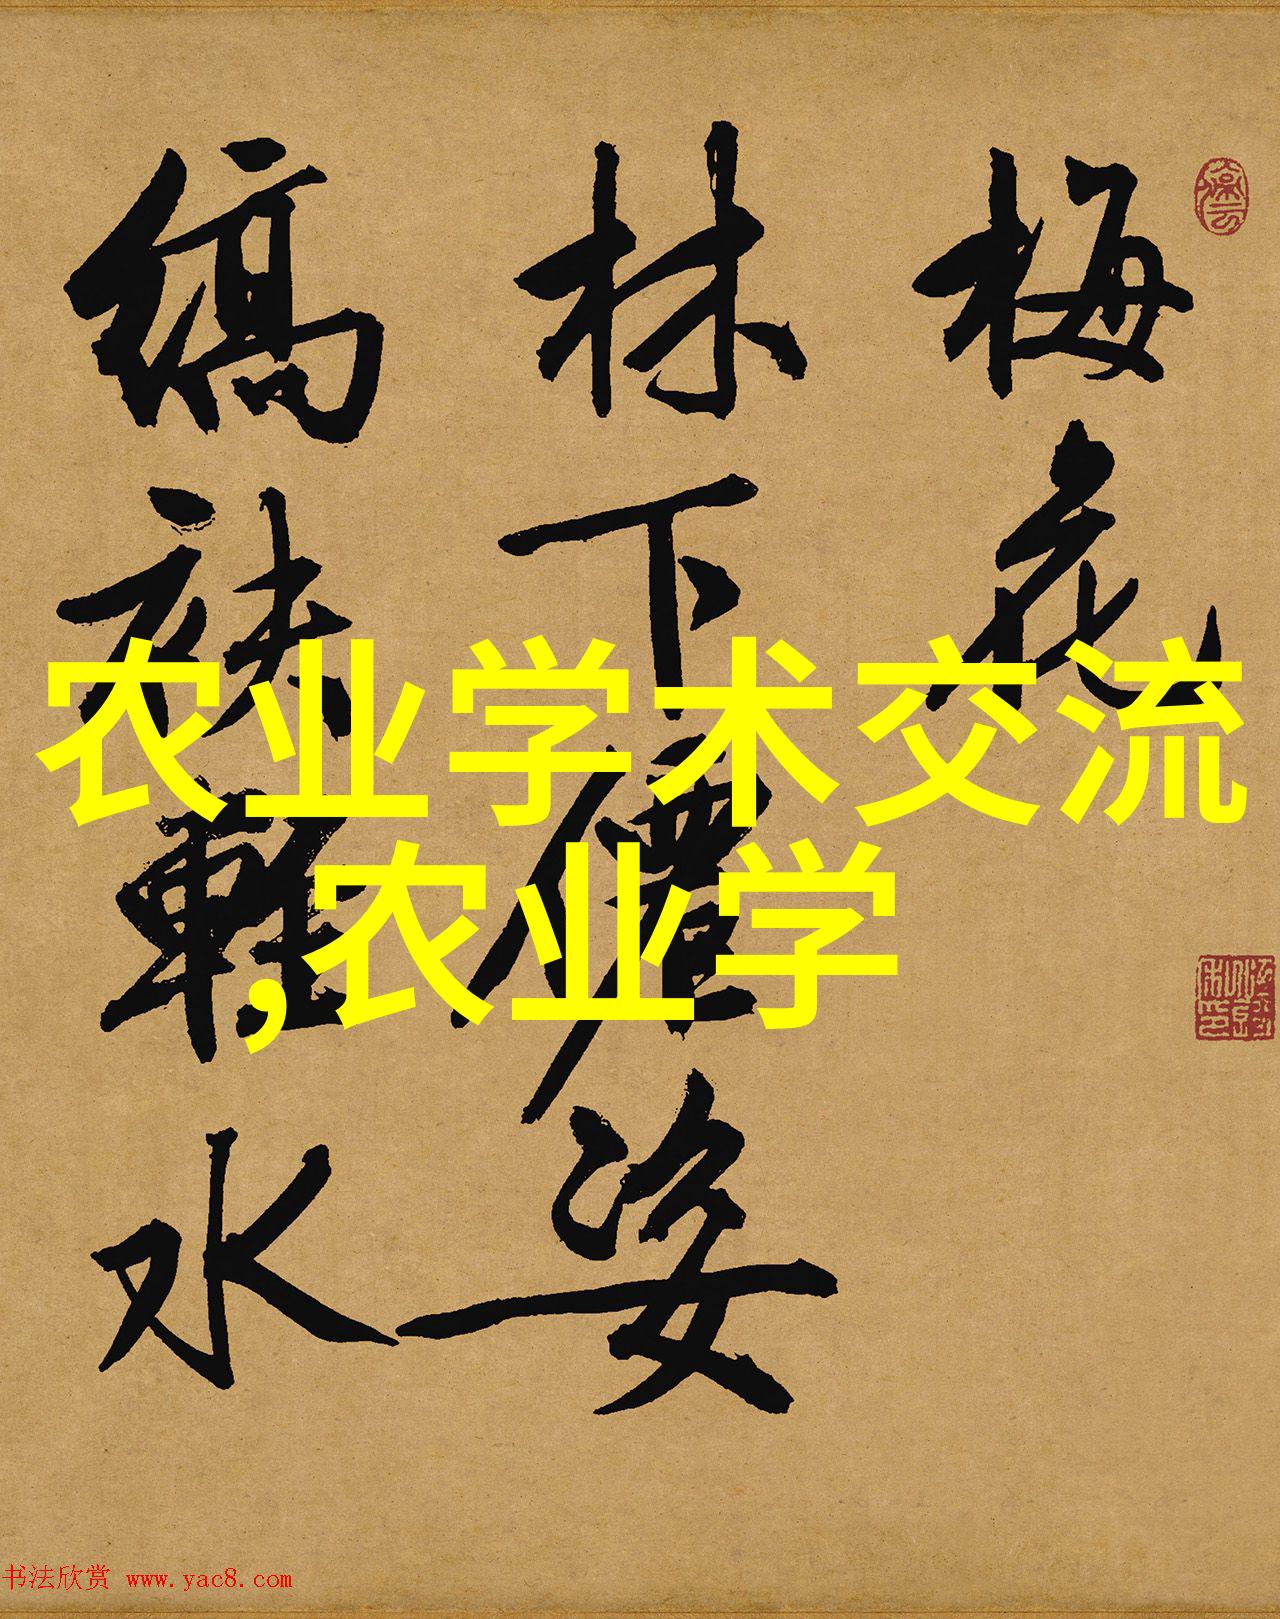 梅花
林下僊姿
縞袂輕水
农业学术交流
,农业学
书法欣赏 www.yac8.com